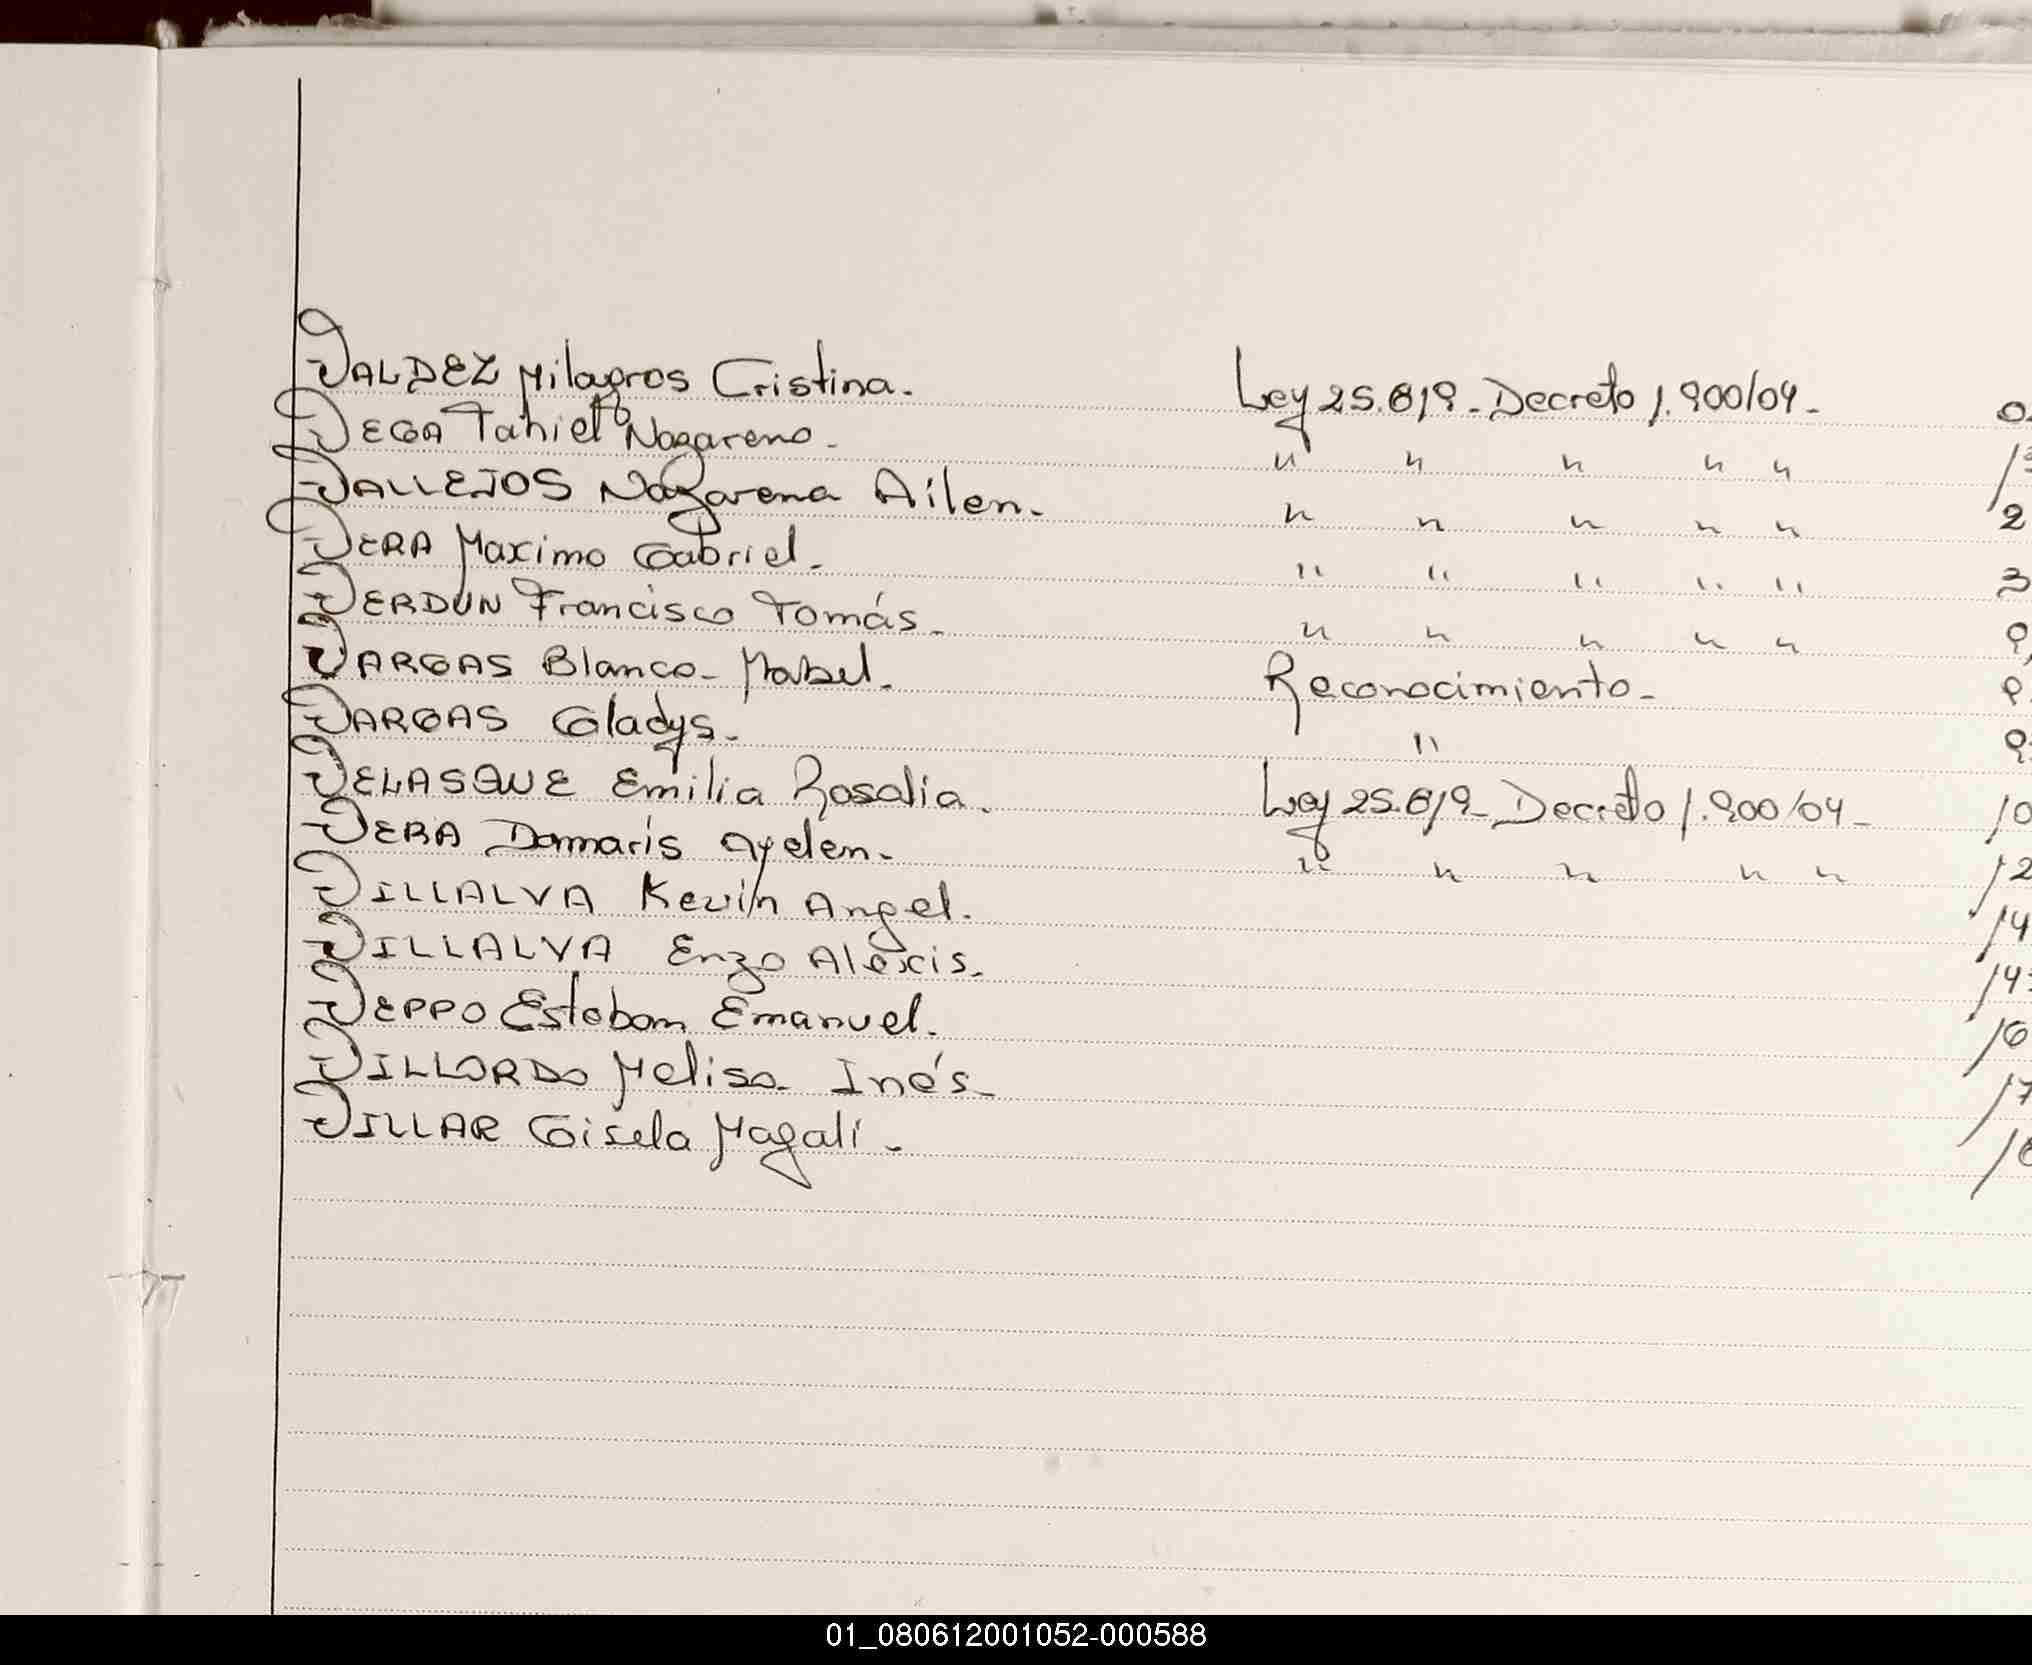 VALDEZ Milagros Cristina. Ley 25.819 - Decreto 1.900/04 -
VEGA Tahiel Nazareno - " " " " "
VALLEJOS Nazarena Ailen. " " " " " 2
VERA Maximo Gabriel. " " " " " 3
VERDUN Francisco Tomás. " " " " "
VARGAS Blanca Mabel. Reconocimiento -
VARGAS Gladys. "
VELASQUE Emilia Rosalia. Ley 25.819 - Decreto 1.900/04 - 10
VERA Damaris Ayelen. " " " " " 12
VILLALVA Kevin Angel. 14
VILLALVA Enzo Alexis. 14
VEPPO Esteban Emanuel. 16
VILLORDO Melisa Inés 17
VILLAR Gisela Magali.
01_080612001052-000588